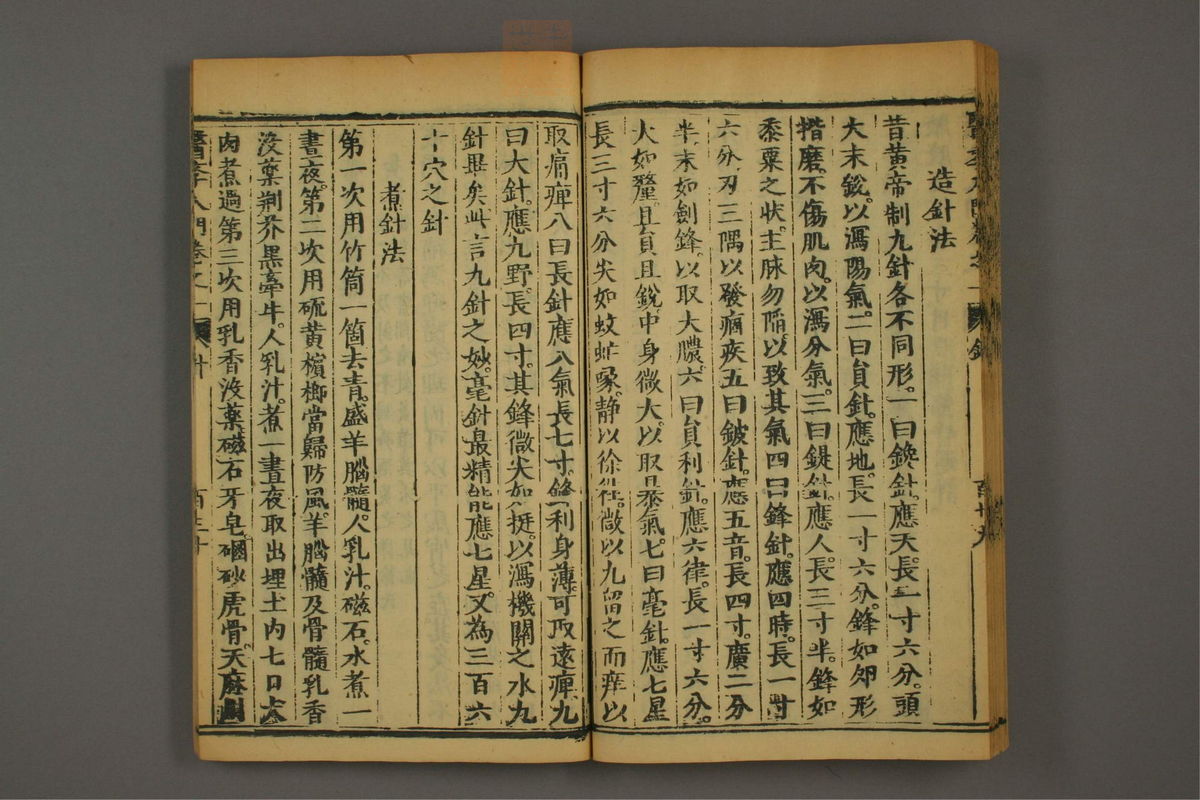 造針法
昔黃帝制九針各不同形一曰鑱針應天長一寸六分頭
大末銳以瀉陽氣二曰員針應地長一寸六分鋒如卵形
揩磨不傷肌肉以瀉分氣三曰鍉針應人長三寸半鋒如
黍粟之狀主脉勿陷以致其氣四曰鋒針應四時長一寸
六分刃三隅以發痼疾五曰鈹針應五音長四寸廣二分
半末如劍鋒以取大膿六曰員利針應六律長一寸六分
大如釐且員且銳中身微大以取暴氣七曰毫針應七星
長三寸六分尖如蚊虻喙静以徐往微以九留之而痒以
取痛痺八曰長針應八氣長七寸鋒利身薄可取遠痺九
曰大針應九野長四寸其鋒微尖如挺以瀉機關之水九
針畢矣此言九針之妙毫針最精能應七星又為三百六
十穴之針
煮針法
第一次用竹筒一箇去青盛羊腦髓人乳汁磁石水煮一
晝夜第二次用硫黄檳榔當歸防風羊腦髓及骨髓乳香
没藥荆芥黑牽牛人乳汁煮一晝夜取出埋土内七日
肉煮過第三次用乳香没藥磁石牙皂硇砂虎骨天麻川
醫學入門卷之一